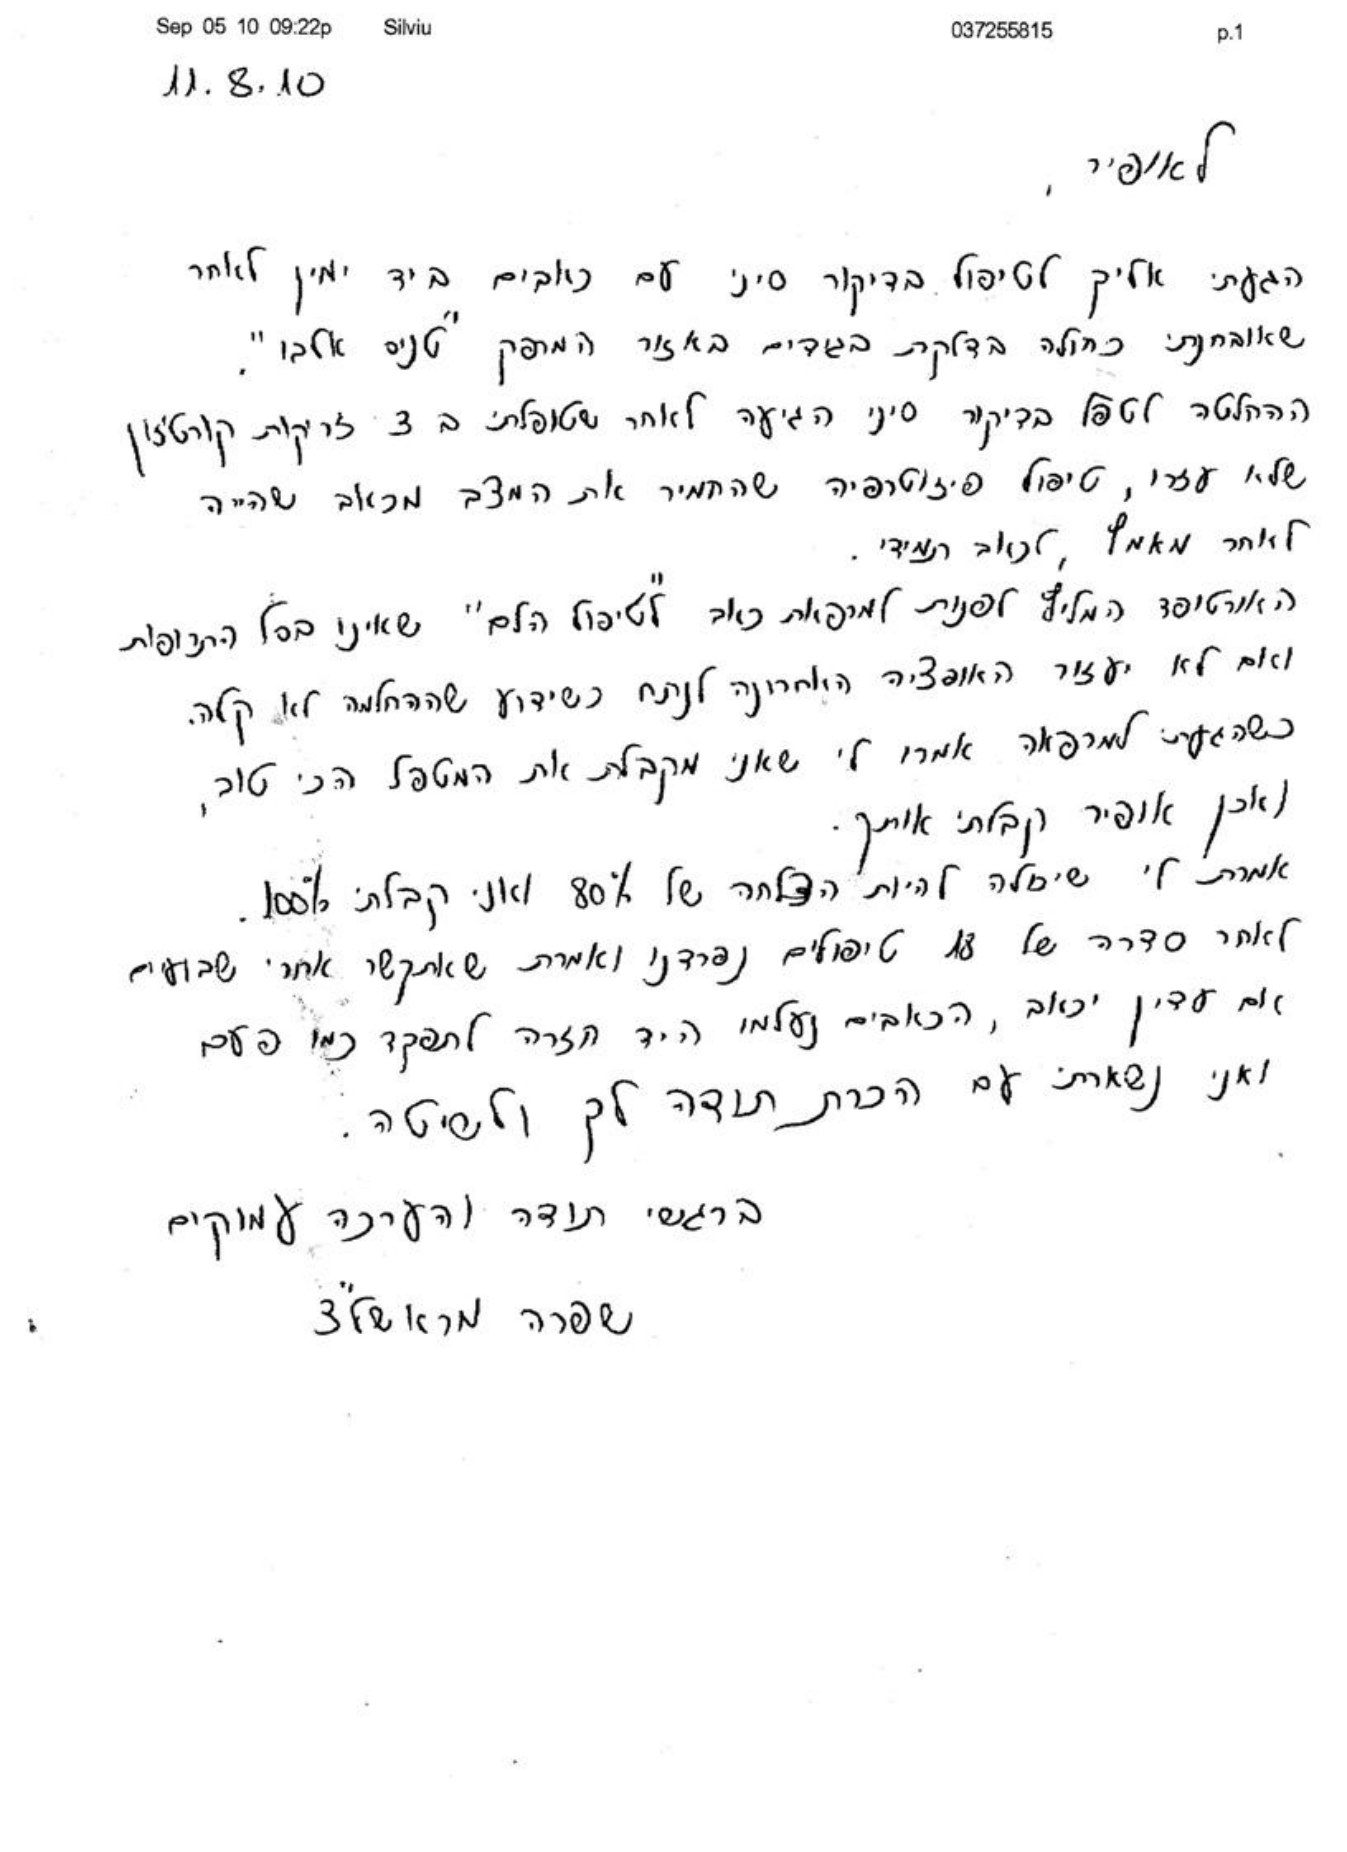 Sep 05 10 09:22p Silviu 037255815 p.1
11.8.10
לאופיר,
הגעתי אליך לטיפול בדיקור סיני עם כאבים ביד ימין לאחר
שאובחנתי כחולה בדלקת בגדים באזור המרפק "טניס אלבו".
ההחלטה לטפל בדיקור סיני הגיעה לאחר שטופלתי ב 3 זריקות קורטיזון
שלא עזרו, טיפול פיזוטרפיה שהחמיר את המצב מכאב שהייה
לאחר מאמץ, לכאב תמידי.
האורטופד המליץ לפנות למרפאת כאב "לטיפול הלם" שאינו בסל התרופות
ואם לא יעזור האופציה האחרונה לנתח כשידוע שההחלמה לא קלה.
כשהגעתי למרפאה אמרו לי שאני מקבלת את המטפל הכי טוב,
ואכן אופיר קבלתי אותך.
אמרת לי שיכולה להיות הצלחה של 80% ואני קבלתי 100%.
לאחר סדרה של טיפולים נפרדנו ואמרת שאתקשר אחרי שבועיים
אם עדין יכאב, הכאבים נעלמו היד חזרה לתפקד כמו פעם
ואני נשארתי עם הכרת תודה לך ולשיטה.
ברגשי תודה והערכה עמוקים
שפרה מראשל"צ